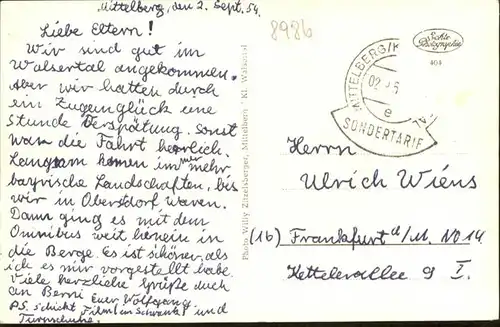 Mittelberg, den 2. Sept. 54.
Liebe Eltern!
Wir sind gut im
Walsertal angekommen.
Aber wir hatten durch
ein Zugunglück eine
Stunde Verspätung. Sonst
war die Fahrt herrlich.
Langsam kamen immer mehr
bayrische Landschaften, bis
wir in Oberstdorf waren.
Dann ging es mit dem
Omnibus weit hinein in
die Berge. Es ist schöner, als
ich es mir vorgestellt habe.
Viele herzliche Grüße auch
an Berni Euer Wolfgang
P.S. schickt Film (in Schrank) und
Turnschuhe.
8986
Echte
Photographie
404
MITTELBERG/K
02.
e
SONDERTARIF
Photo Willy Zitzelsberger, Mittelberg, Kl. Walsertal
Herrn
Ulrich Wiens
(16) Frankfurt a/M. NO 14
Kettelerallee 9 I.